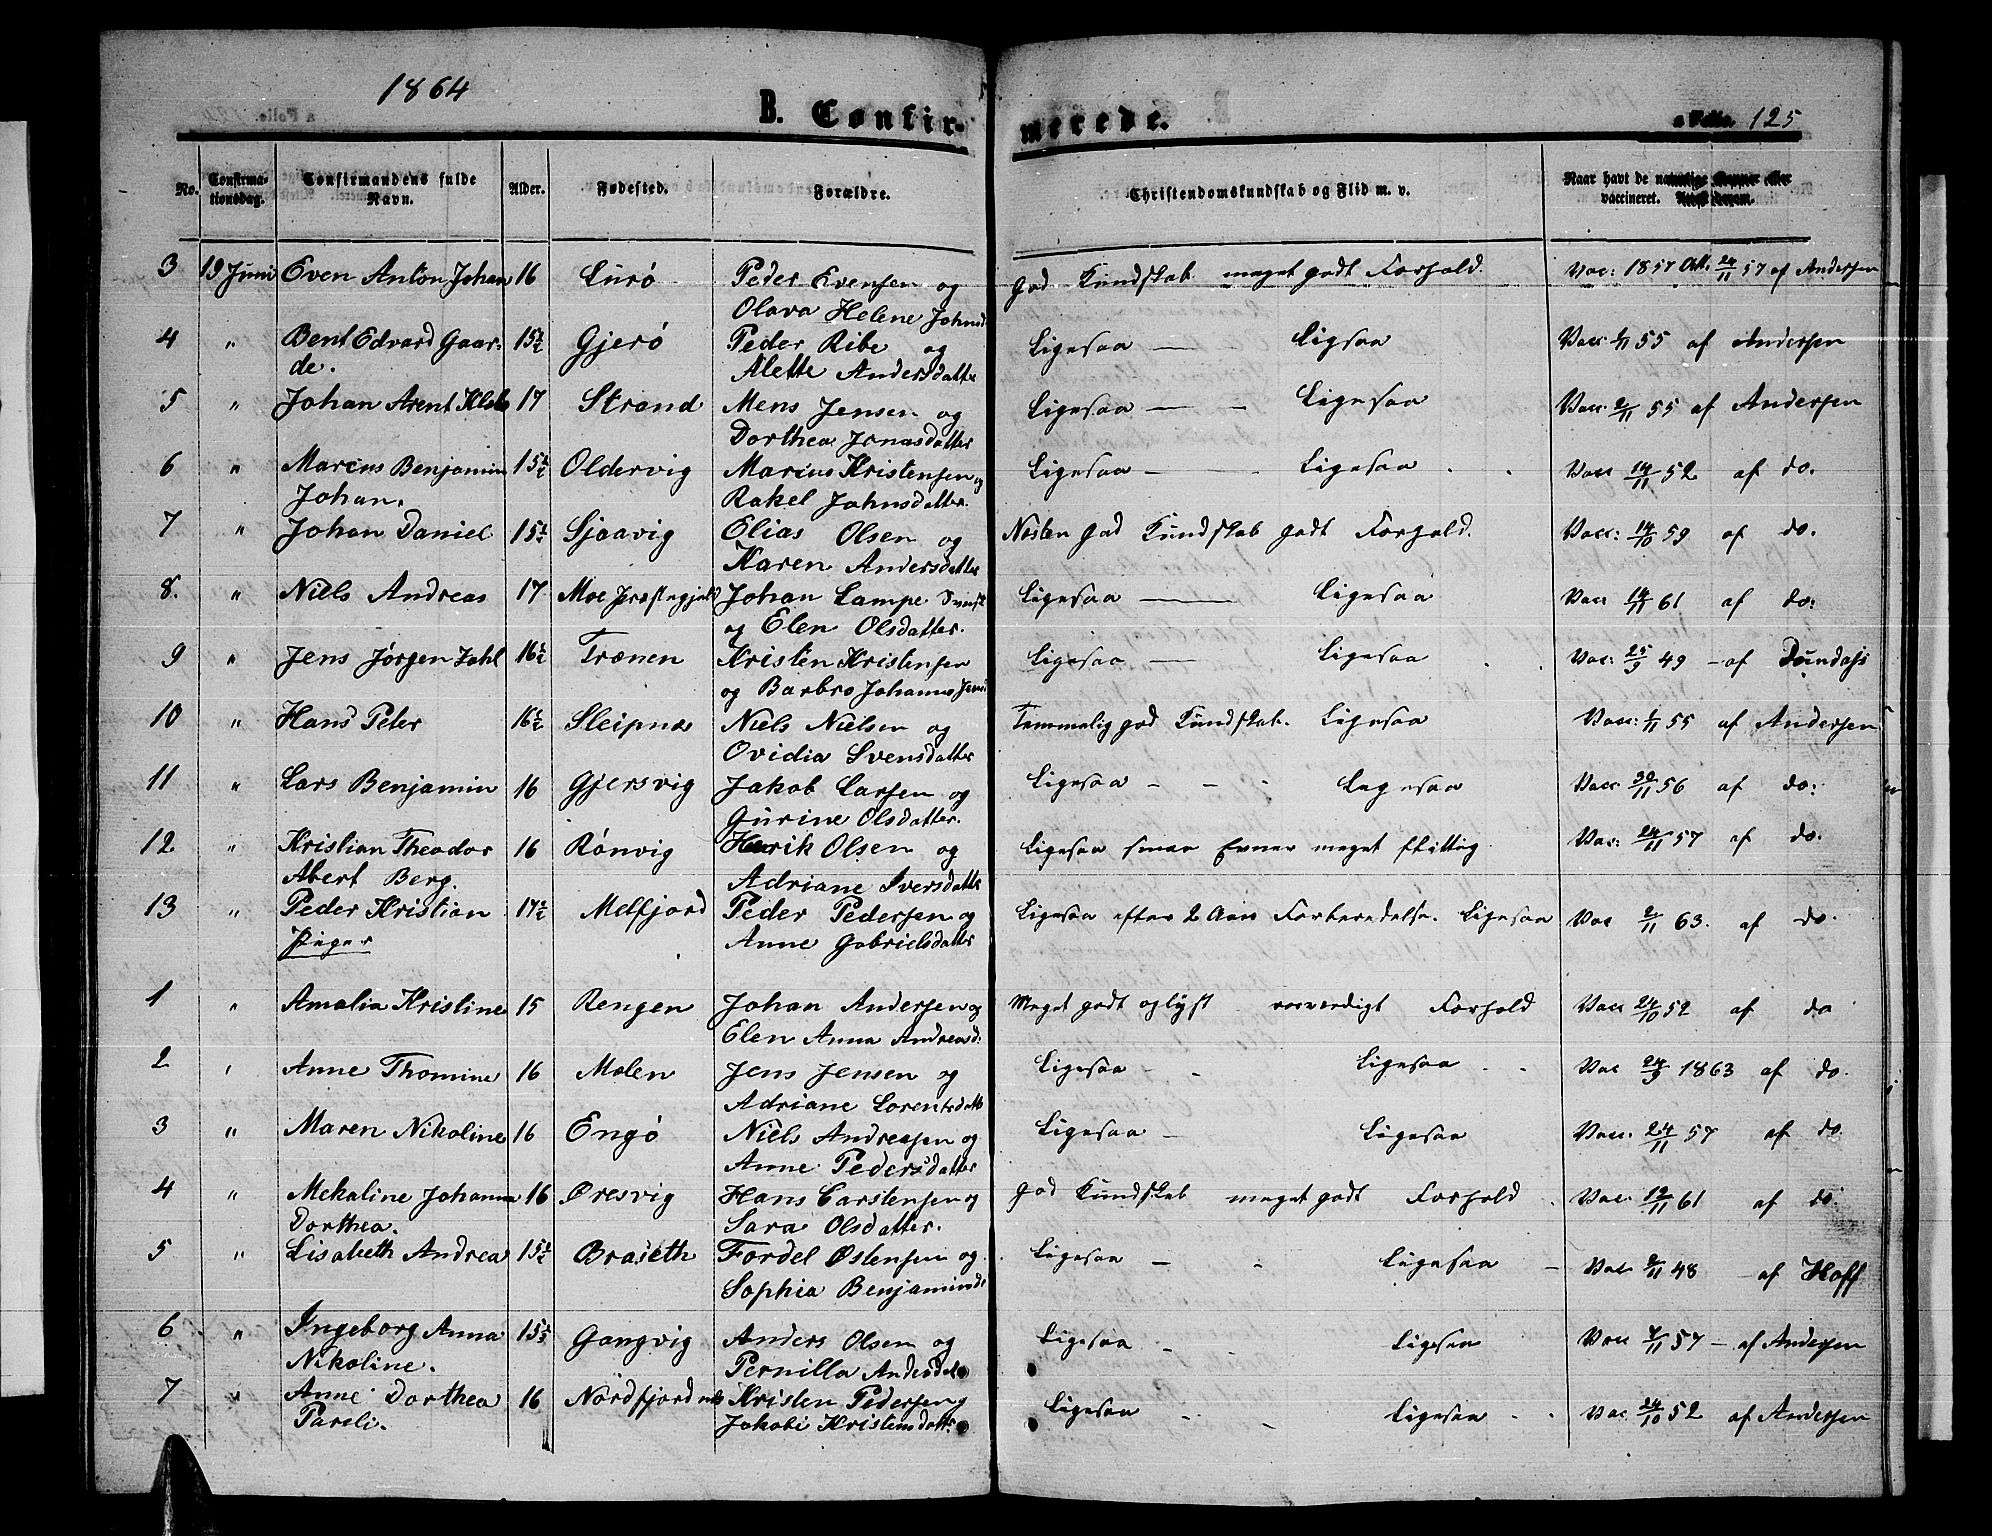 1864
B. Confirmerede.
a Folio. 125
No.
Confirmationsdag.
Confirmandens fulde Navn.
Alder.
Fødested.
Forældre.
Christendomskundskab og Flid m. v.
Naar havt de naturlige Kopper eller
vaccineret.
3 19 Juni Even Anton Johan 16 Lurø Peder Evensen og God Kundskab meget godt Forhold. Vac: 1857 Att. 24/11 57 af Andersen
Olava Helene Johnsd
4 " Bent Edvard Gaar- 15½ Gjerø Peder Ribe og Ligesaa — Ligsaa Vacc 55 af Andersen
de. Alette Andersdatter
5 " Johan Arent Klæb 17 Strand Mens Jensen og Ligesaa — - Ligesaa Vacc: 2/11 55 af Andersen
Dorthea Jonasdatter
6 " Marcus Benjamin 15½ Oldervig Marcus Kristensen og Ligesaa — Ligesaa Vacc 14/11 52 af do.
Johan. Rakel Johnsdatter.
7 " Johan Daniel 15½ Sjaavig Elias Olsen og Næsten god Kundskab godt Forhold. Vacc: 14/10 59 af do.
Karen Andersdatter
8. " Niels Andreas 17 Moe Præstegjeld Johan Lampe Ligesaa — Ligesaa Vacc 14/11 61 af do:
og Elen Olsdatter.
9 " Jens Jørgen Zahl 16½ Trænen Kristen Kristensen Ligesaa — Ligesaa Vac: 25/9 49 — af Dundass
og Barbro Johanna
10 " Hans Peter 16½ Sleipnæs Niels Nielsen og Temmelig god Kundskab. Ligesaa Vacc: 55 af Andersen
Ovidia Svensdatter
11 " Lars Benjamin 16 Gjersvig Jakob Larsen og Ligesaa - - Ligesaa Vacc 30/11 56 af do:
Gurine Olsdatter.
12 " Kristian Theodor 16 Rønvig Henrik Olsen og Ligesaa smaa Evner meget flittig. Vac: 24/11 57 af do.
Abert Berg. Adriane Iversdatter
13 " Peder Kristian 17½ Melfjord Peder Pedersen og Ligesaa efter 2 Aars Forberedelse. Ligesaa Vac 2/11 63. af do.
Piger Anne Gabrielsdatter
1 " Amalia Kristine 15 Rengen Johan Andersen og Meget godt oplyst rosværdigt Forhold Vacc 24/10 52 af do
Elen Anna Andreasd:
2 " Anne Thomine 16 Molen Jens Jensen og Ligesaa - Ligesaa Vac 24/9 1863 af do.
Adriane Lorentsdatt
3 " Maren Nikoline 16 Engø Niels Andreasen og Ligesaa - Ligesaa Vacc. 24/11 57 af do
Anne Pedersdatter
4 " Mekaline Johanna 16 Øresvig Hans Carstensen og God Kundskab meget godt Forhold Vac. 12/11 61 af do
Dorthea. Sara Olsdatter.
5 " Lisabeth Andrea 15½ Braseth Fordel Østensen og Ligesaa - Ligesaa — Vac 2/11 48 — af Hoff
Sophia Benjaminsd
6 " Ingeborg Anna 15½ Gongvig Anders Olsen og Ligesaa - Ligesaa Vacc 57 — af Andersen
Nikoline. Pernilla Andersdat
7 " Anne Dorthea 16 Nordfjordnæs Kristen Pedersen og Ligesaa - Ligesaa Vac 24/10 52 af Andersen
Pareli. Jakobi Kristensdatt.